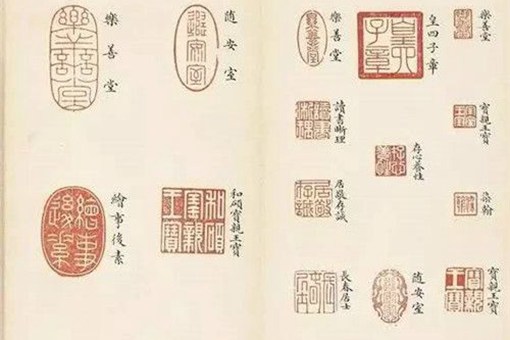 樂善堂
寶親王寶
染翰
寶親王寶
皇四子章
存心養性
随安室
樂善堂
讀書晰理
居敬存誠
長春居士
随安室
和碩寶親王寶
樂善堂
繪事後素